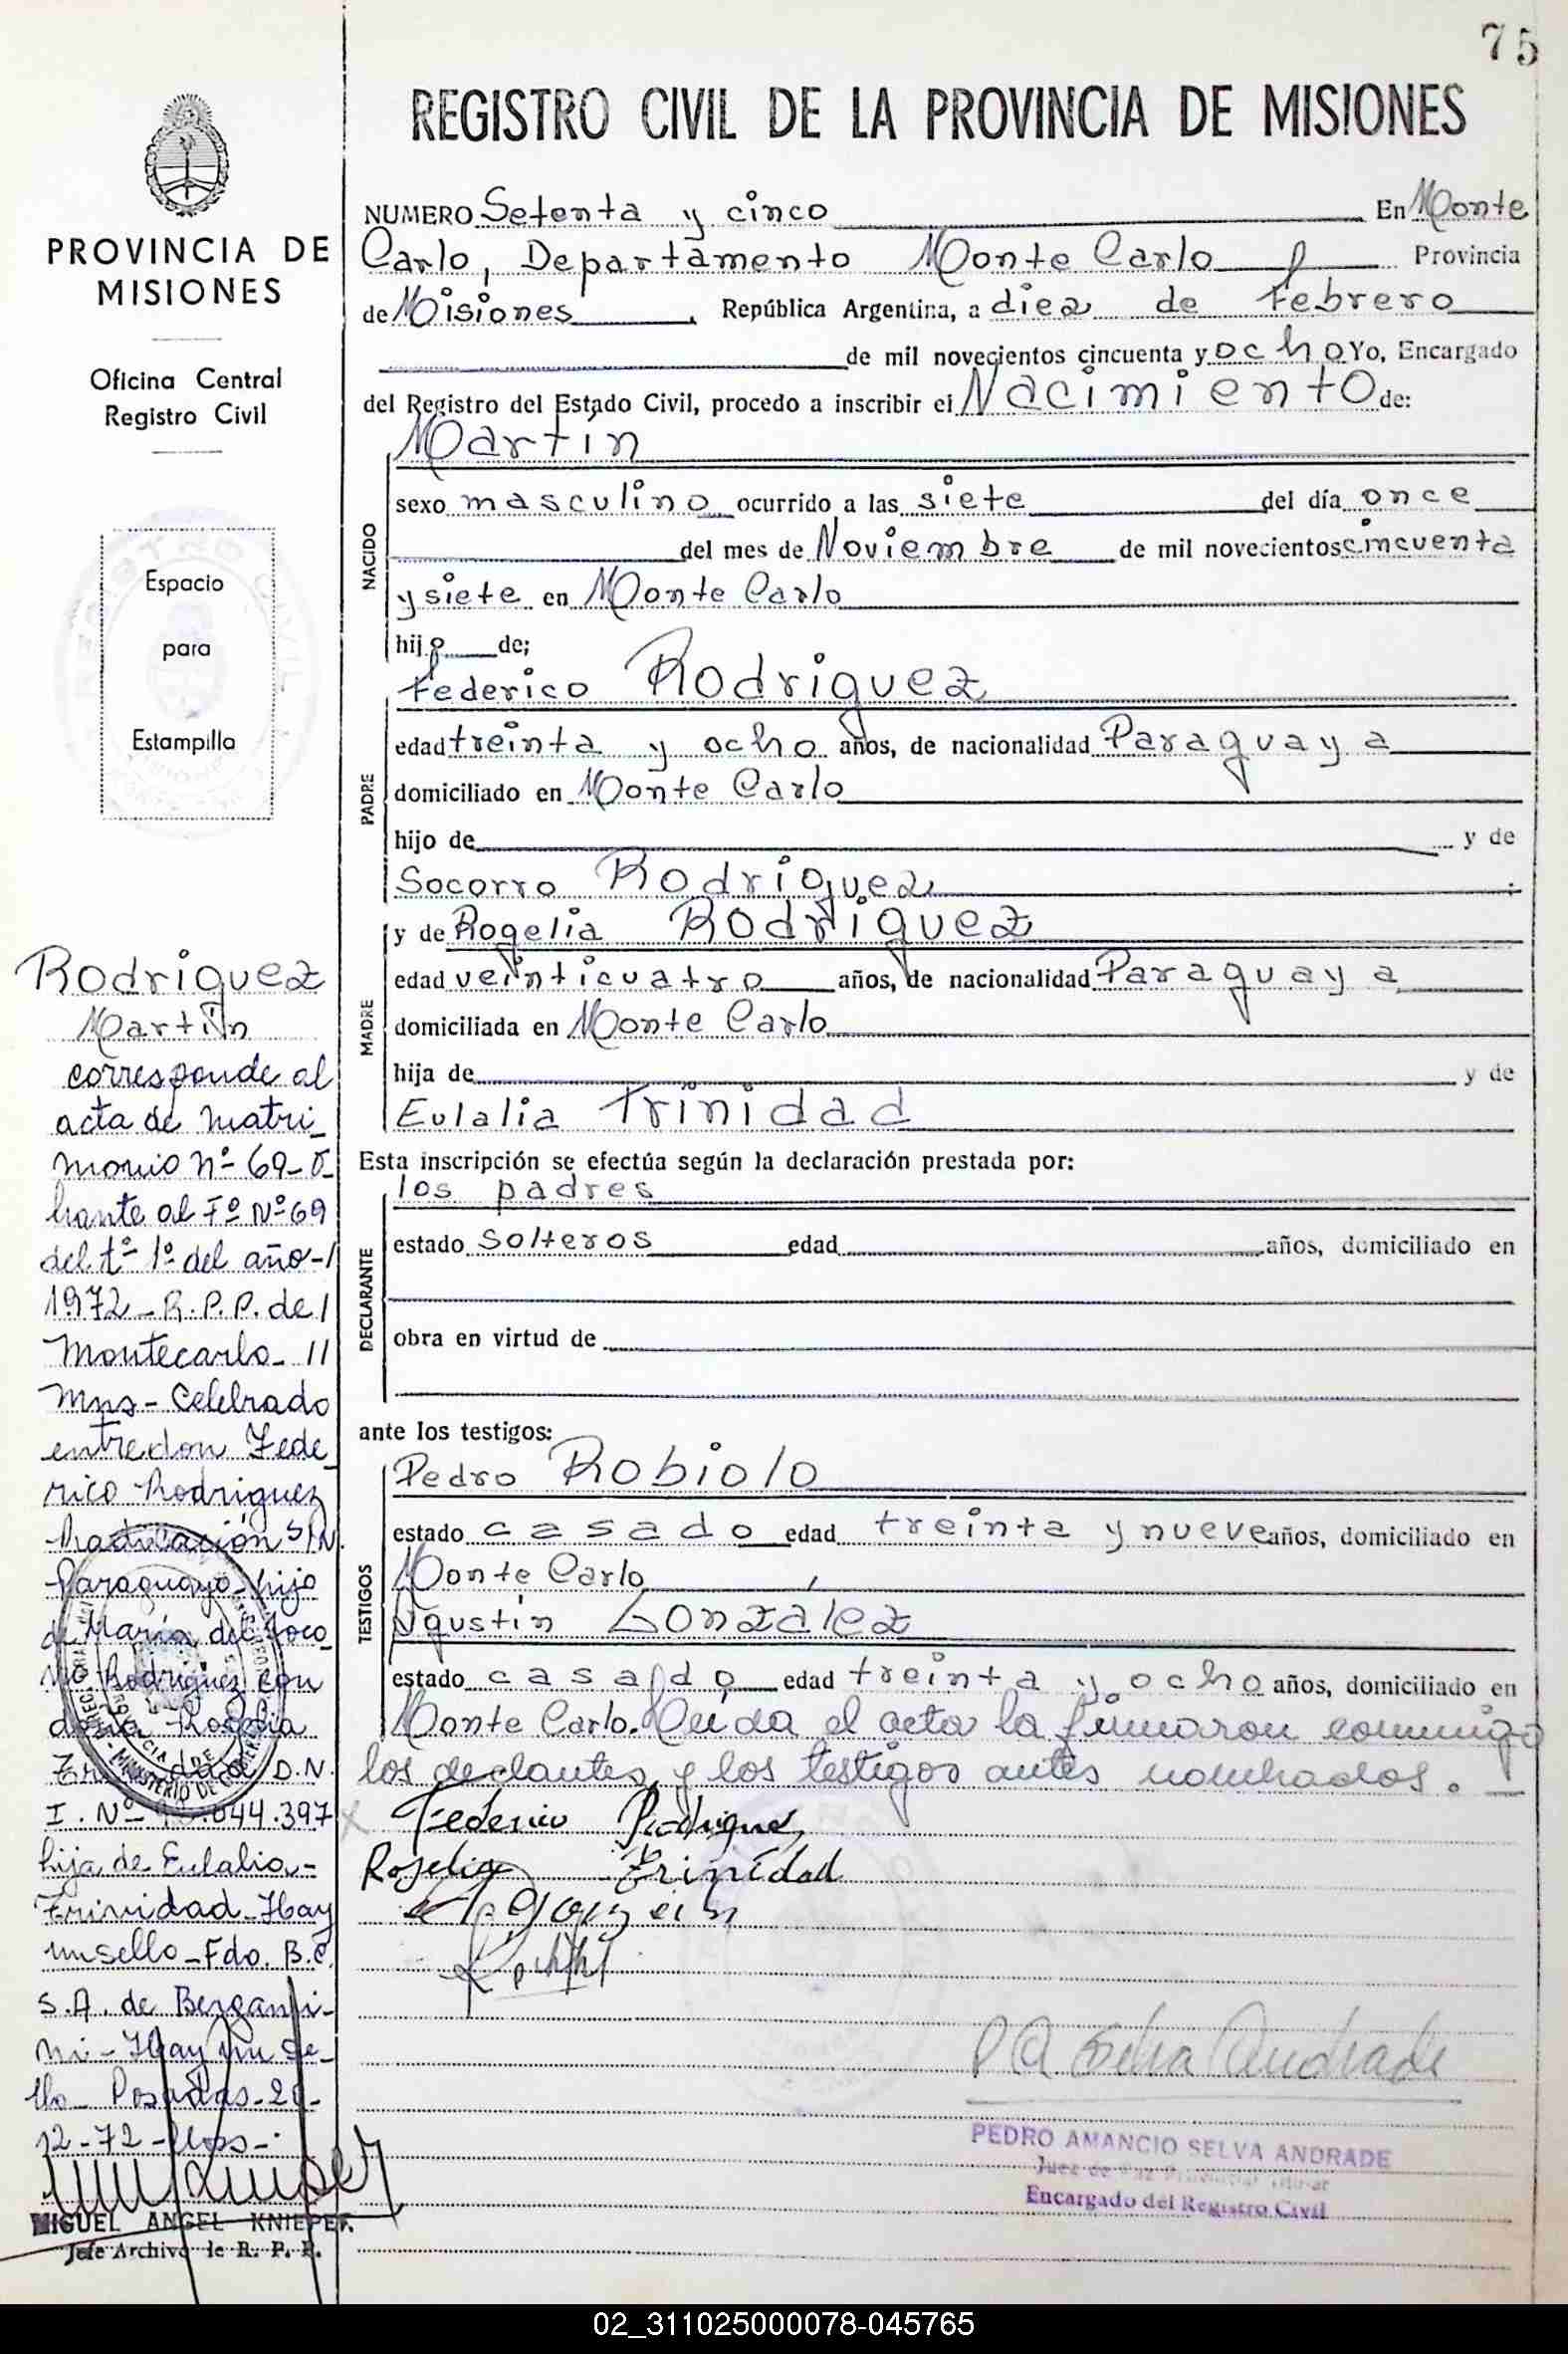 75
REGISTRO CIVIL DE LA PROVINCIA DE MISIONES
PROVINCIA DE
MISIONES
Oficina Central
Registro Civil
Espacio
para
Estampilla
NUMERO Setenta y cinco En Monte
Carlo, Departamento Monte Carlo Provincia
de Misiones, República Argentina, a diez de Febrero
de mil novecientos cincuenta y ocho Yo, Encargado
del Registro del Estado Civil, procedo a inscribir el Nacimiento de:
NACIDO
Martín
sexo masculino ocurrido a las siete del día once
del mes de Noviembre de mil novecientos cincuenta
y siete en Monte Carlo
hijo de;
PADRE
Federico Rodriguez
edad treinta y ocho años, de nacionalidad Paraguaya
domiciliado en Monte Carlo
hijo de y de
Socorro Rodriguez
MADRE
y de Rogelia Rodriguez
edad veinticuatro años, de nacionalidad Paraguaya
domiciliada en Monte Carlo
hija de y de
Eulalia Trinidad
Esta inscripción se efectúa según la declaración prestada por:
DECLARANTE
los padres
estado solteros edad años, domiciliado en
obra en virtud de
ante los testigos:
TESTIGOS
Pedro Robiolo
estado casado edad treinta y nueve años, domiciliado en
Monte Carlo
Agustín Gonzalez
estado casado edad treinta y ocho años, domiciliado en
Monte Carlo. Leida el acta la firmaron conmigo
los declantes y los testigos antes nombrados.
Federico Rodriguez
Rogelia Trinidad
P A Selva Andrade
PEDRO AMANCIO SELVA ANDRADE
Juez de Paz
Encargado del Registro Civil
Rodriguez
Martín
corresponde al
acta de matri_
monio Nº 69-O_
brante al Fº Nº 69
del tº 1º del año-/
1972-R.P.P. de/
Montecarlo-//
Mns-Celebrado
entre don Fede_
rico Rodriguez
Radicación S/N.
Paraguayo-hijo
de María del Soco_
rro Rodriguez con
doña Rogelia
Trinidad D.N.
I. Nº .044.397
hija de Eulalia-
Trinidad-Hay
un sello-Fdo. B.C.
S.A. de Bergami-
ni-Hay un se-
llo-Posadas-2
12-72-
MIGUEL ANGEL KNIEPER
Jefe Archivo de R. P. P.
02_311025000078-045765